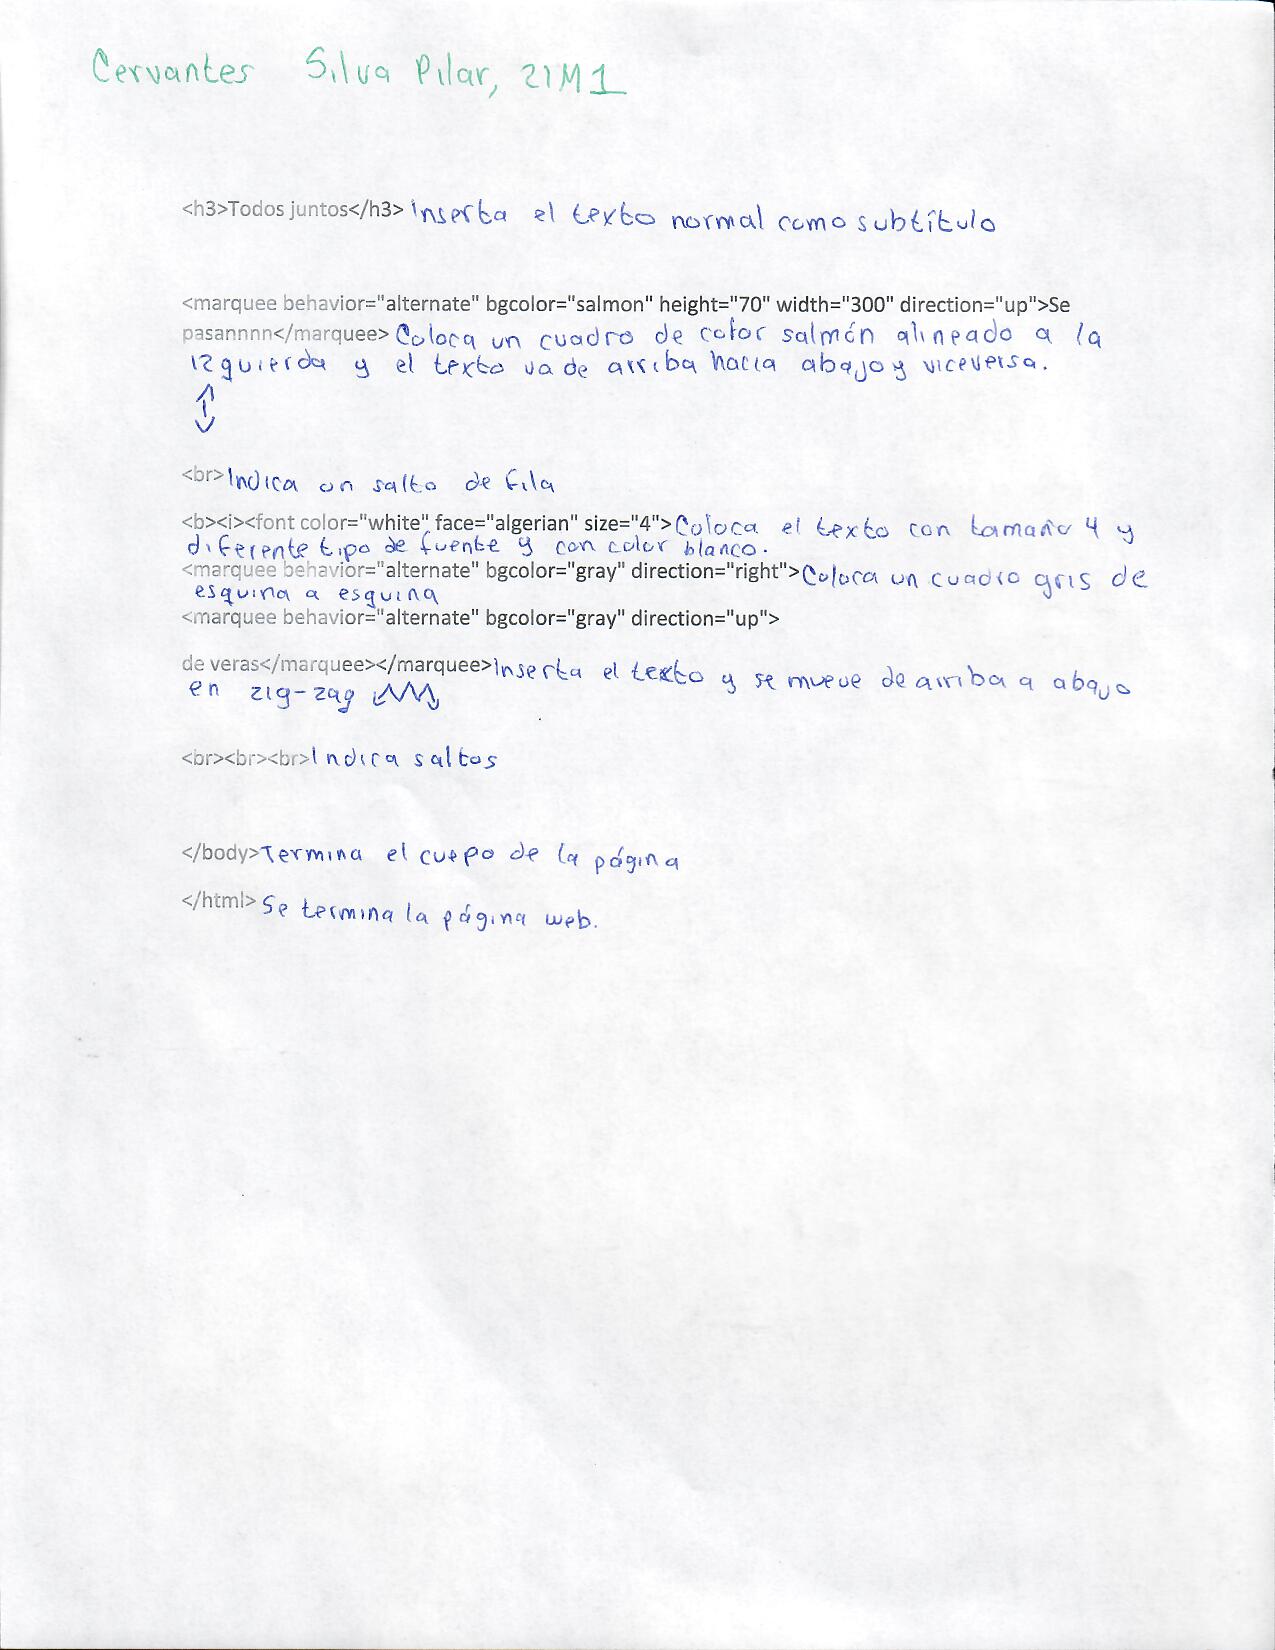 Cervantes Silva Pilar, 21M1
<h3>Todos juntos</h3> Inserta el texto normal como subtítulo
<marquee behavior="alternate" bgcolor="salmon" height="70" width="300" direction="up">Se
pasannnn</marquee> Coloca un cuadro de color salmón alineado a la
izquierda y el texto va de arriba hacia abajo y viceversa.
<br>Indica un salto de fila
<b><i><font color="white" face="algerian" size="4">Coloca el texto con tamaño 4 y
diferente tipo de fuente y con color blanco.
<marquee behavior="alternate" bgcolor="gray" direction="right">Coloca un cuadro gris de
esquina a esquina
<marquee behavior="alternate" bgcolor="gray" direction="up">
de veras</marquee></marquee>Inserta el texto y se mueve de arriba a abajo
en zig-zag
<br><br><br>Indica saltos
</body>Termina el cuepo de la página
</html> Se termina la página web.